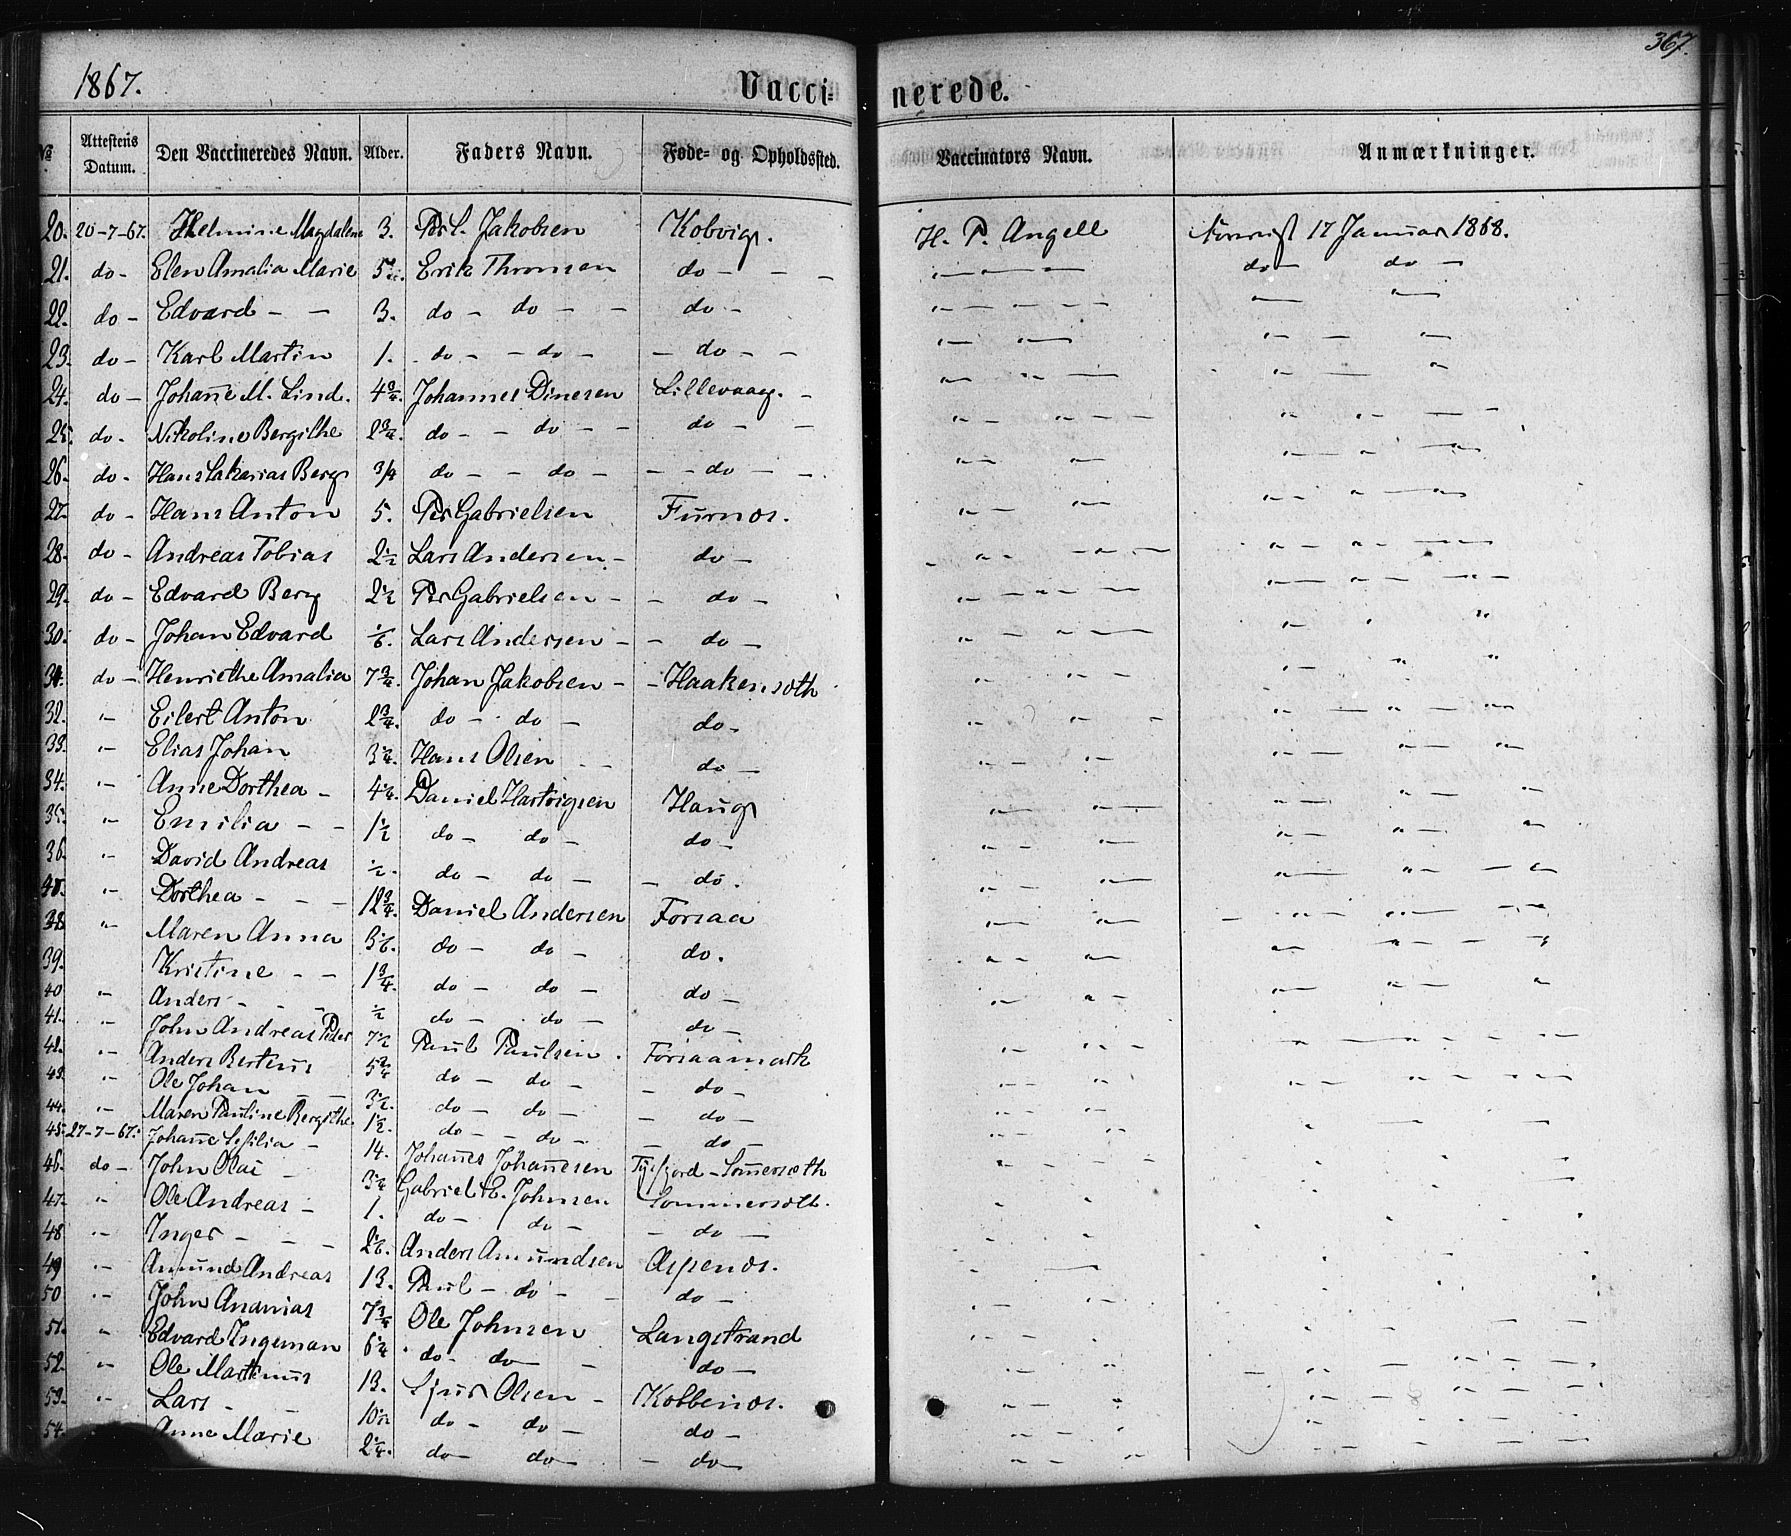 367.
1867. Vacci= nerede.
№ Attestens Datum. Den Vaccineredes Navn. Alder. Faders Navn. Føde- og Opholdssted. Vaccinators Navn. Anmærkninger.
20. 20-7-67. Helmine Magdalene 3. P. L. Jakobsen Kobvig. H. P. Angell 17 Januar 1868.
21. do- Elen Amalia Marie Erik Thomsen do - - - do - do -
22. do - Edvard - - 3. do - do - - do -
23. do - Karl Martin 1. do - - do - - do - -
24. do - Johan̄e M. Lind. 4 3/4. Johannes Dinesen Lillevaag. -
25. do - Nikoline Bergithe 2 3/4. do - - do - - do - -
26. do - Hans Sakarias Berg 3/4 do - - do - - - do - -
27. do - Hans Anton 5. Per Gabrielsen Furnæs.
28. do - Andreas Tobias 2 1/2 Lars Andersen - do -
29. do - Edvard Berg 2 1/2 Per Gabrielsen - - do -
30. do - Johan Edvard 1/6. Lars Andersen - - do -
31. do - Henriethe Amalia 7 3/4. Johan Jakobsen - - Haakensæth
32. " - Eilert Anton 2 3/4. do - do - do -
33. " - Elias Johan 3 1/4. Hans Olsen - - do -
34. " - Anne Dorthea - 4 1/4. Daniel Hartvigsen Haug
35. " - Emilia - - 1 1/2 do - do - do -
36. " - David Andreas 1/2. do - do - - do.
" - Dorthea - - - 12 3/4. Daniel Andersen Forsaa
38. " - Maren Anna 3 1/6. do - do - do.
39. Kristine - - 1 3/4. do - do - do -
40 " - Anders - - - 1/2 do - do - do -
41. " - John Andreas Peder 7 1/2 Paul Paulsen. Forsaamark
42. " - Anders Bertinus 5 3/4 do - do - - do -
43. " - Ole Johan 3 1/2. do - do - - do -
44. " - Maren Pauline Bergithe 1 1/2. do - - do - - do -
45. 27-7-67. Johan̄e Sefilia - 14. Johan̄es Johan̄esen Tysfjord - Som̄ersæth
46. do - John Olai - 3 1/4 Gabriel E. Johnsen Sommersæth.
47. " - Ole Andreas - 1. do - do - - do -
48 " - Inger - - - 2 1/6. Anders Amundsen Aspenæs.
49 " - Amund Andreas 13. Paul - do - - do -
50 " - John Ananias 7 3/4 Ole Johnsen Langstrand
51. " Edvard Ingeman 6 1/4 do - do - - do -
52. " - Ole Martinus 13. Sjur Olsen - Kobbenæs.
53. " - Lars - - 10 1/2 do - do - do -
54. Anne Marie 2 1/4. do - do - - do -